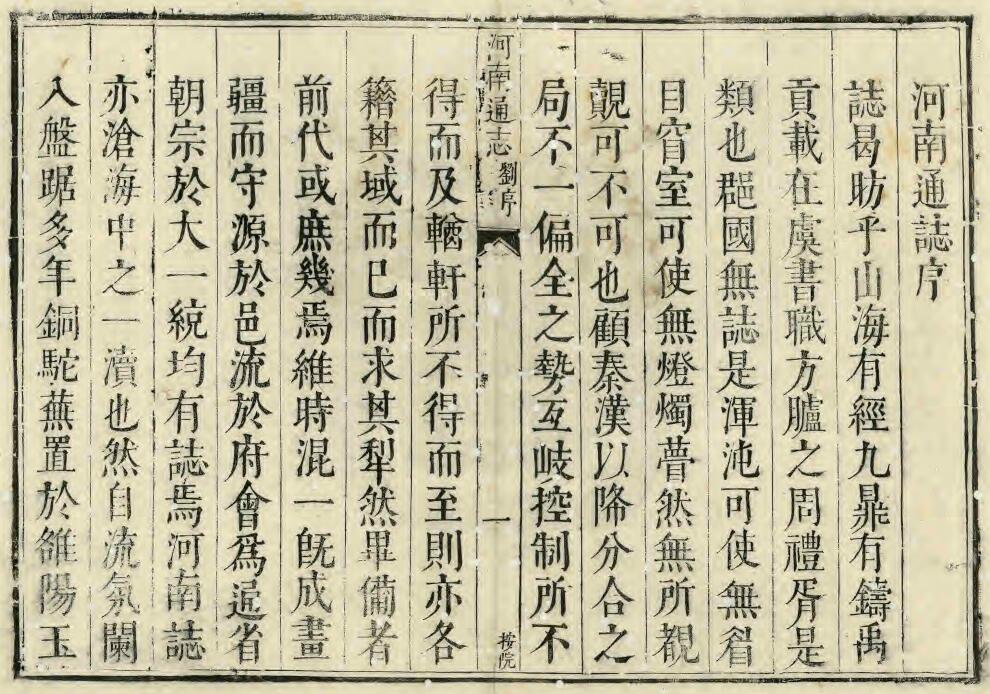 河南通誌序
誌曷昉乎山海有經九鼎有鑄禹
貢載在虞書職方臚之周禮胥是
類也郡國無誌是渾沌可使無眉
目窅室可使無燈燭瞢然無所覩
覿可不可也顧秦漢以降分合之
局不一偏全之勢互岐控制所不
河南通志 劉序 一 按院
得而及輶軒所不得而至則亦各
籍其域而已而求其犁然畢備者
前代或庶幾焉維時混一旣成畫
疆而守源於邑流於府會爲通省
朝宗於大一統均有誌焉河南誌
亦滄海中之一瀆也然自流氛闌
入盤踞多年銅駝蕪置於雒陽玉